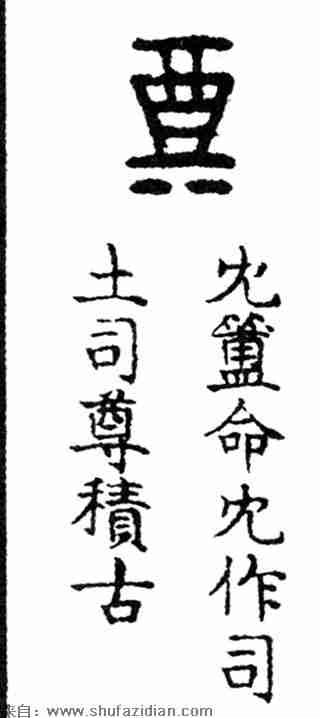 冘簠命冘作司
土司尊積古
来自：www.shufazidian.com